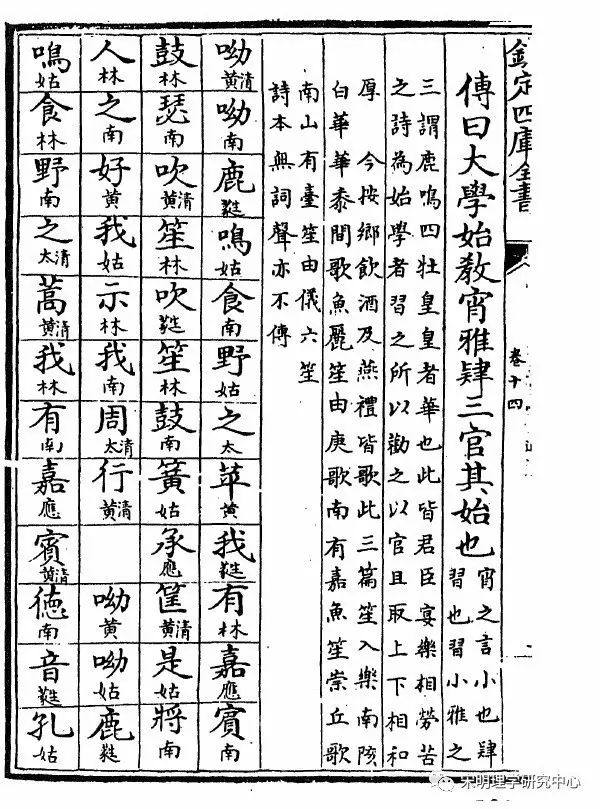 欽定四庫全書 卷十四
傳曰大學始教宵雅肄三官其始也 宵之言小也肄
習也習小雅之
三謂鹿鳴四牡皇皇者華也此皆君臣宴樂相勞苦
之詩為始學者習之所以勸之以官且取上下相和
厚 今按鄉飲酒及燕禮皆歌此三篇笙入樂南陔
白華華黍間歌魚麗笙由庚歌南有嘉魚笙崇丘歌
南山有臺笙由儀六笙
詩本無詞聲亦不傳
呦清黃 呦南 鹿蕤 鳴姑 食南 野姑 之太 苹黃 我蕤 有林 嘉應 賓南
鼓林 瑟南 吹清黃 笙林 吹蕤 笙林 鼓南 簧姑 承應 筐清黃 是姑 將南
人林 之南 好黃 我姑 示林 我南 周清太 行清黃 呦黃 呦姑 鹿蕤
鳴姑 食林 野南 之清太 蒿清黃 我林 有南 嘉應 賓清黃 德南 音蕤 孔姑
宋明理学研究中心